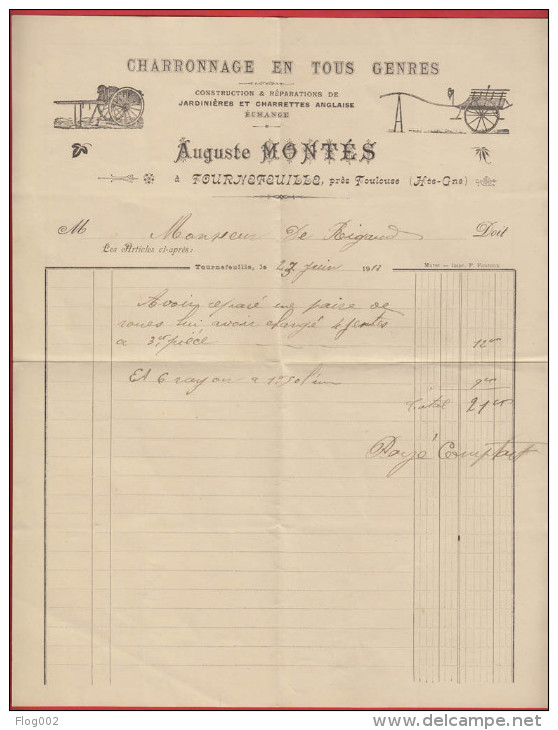 CHARRONNAGE EN TOUS GENRES
CONSTRUCTION & RÉPARATIONS DE
JARDINIÈRES ET CHARRETTES ANGLAISE
ÉCHANGE
Auguste MONTÉS
à TOURNEFEUILLE, près Toulouse (Hte-Gne)
M Monsieur de Rigaud Doit
Les Articles ci-après:
Tournefeuille, le 27 juin 191
Avoir réparé une paire de
roues lui avoir changé 4 jentes
a 3 pièce 12
Et 6 rayon a 1 50 l'un 9
Total 21
Payé Comptant
Flog002
www.delcampe.net